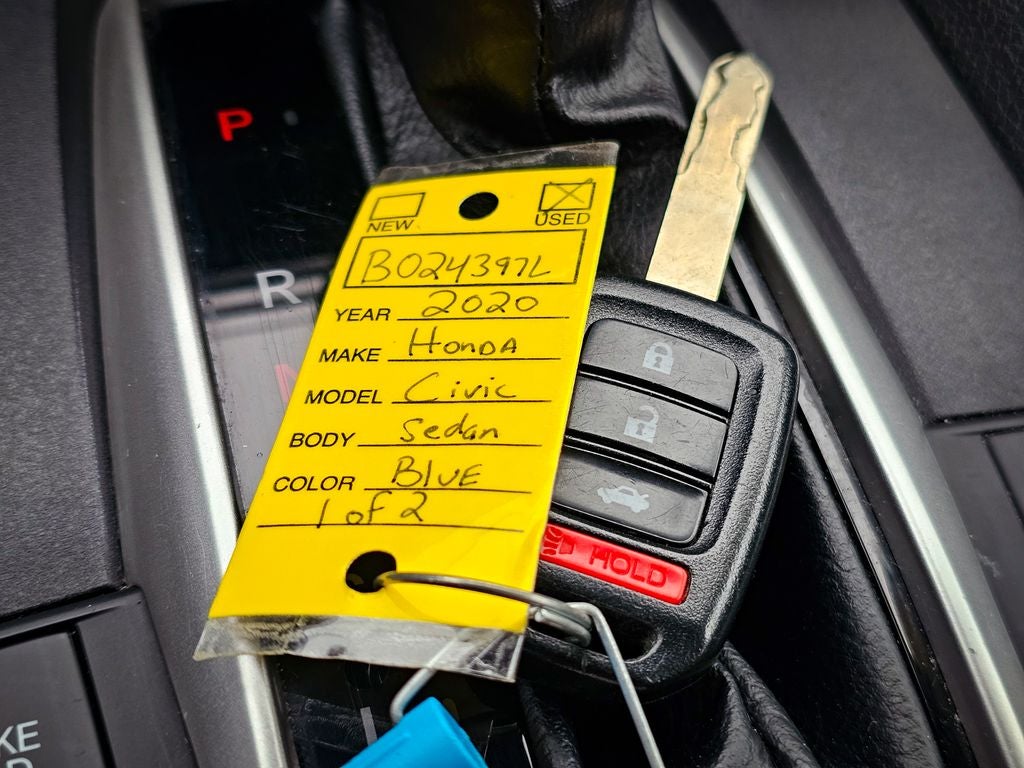 P
R
NEW USED
B024397L
YEAR 2020
MAKE HONDA
MODEL Civic
BODY Sedan
COLOR BLUE
1 of 2
HOLD